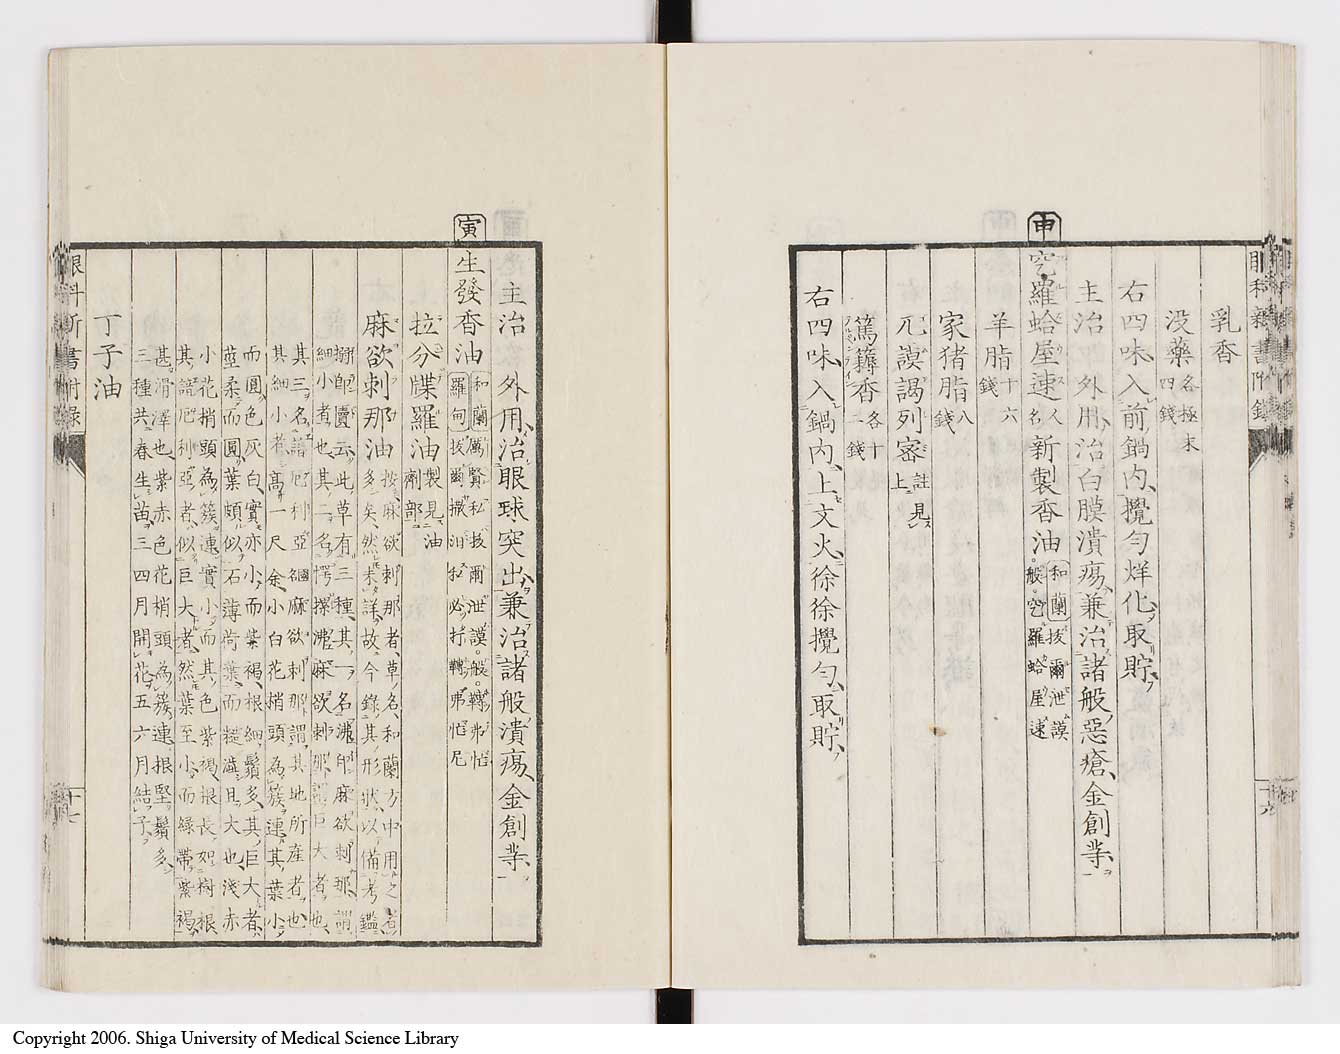 乳香
没藥 各極末四錢
右四味入前鍋内攪勻烊化取貯
主治 外用治白膜潰瘍兼治諸般惡瘡金創業
申
空羅蛤屋速 人名 新製香油 和蘭 拔爾泄謨般空羅蛤屋速
羊脂 十六錢
家猪脂 八錢
兀謨謁列密 註見上
篤耨香 各十二錢
右四味入鍋内上文火徐徐攪勻取貯
主治 外用治眼球突出兼治諸般潰瘍金創業
寅
生發香油
拉分牒羅油 製見油劑部
麻欲刺那油 按麻欲刺那者草名和蘭方中用之者
多矣然未詳故今錄其形狀以備考鑑
細小者也其二名愕摞灎麻欲刺那謂巨大者也
其三名諳厄利亞國麻欲刺那謂其地所產者也
其細小者高一尺余小白花梢頭為簇連其葉小
而圓色灰白實亦小而紫褐根細鬚多其巨大者
莖柔而圓葉頗似石薄荷葉而糙澁且大也淺赤
小花梢頭為簇連實小而其色紫褐根長如樹根
其諳厄利亞者似巨大者然葉至小而綠帶紫褐
甚滑澤也紫赤色花梢頭為簇連根堅鬚多
三種共春生苗三四月開花五六月結子
丁子油
眼科新書附錄
十七
Copyright 2006. Shiga University of Medical Science Library